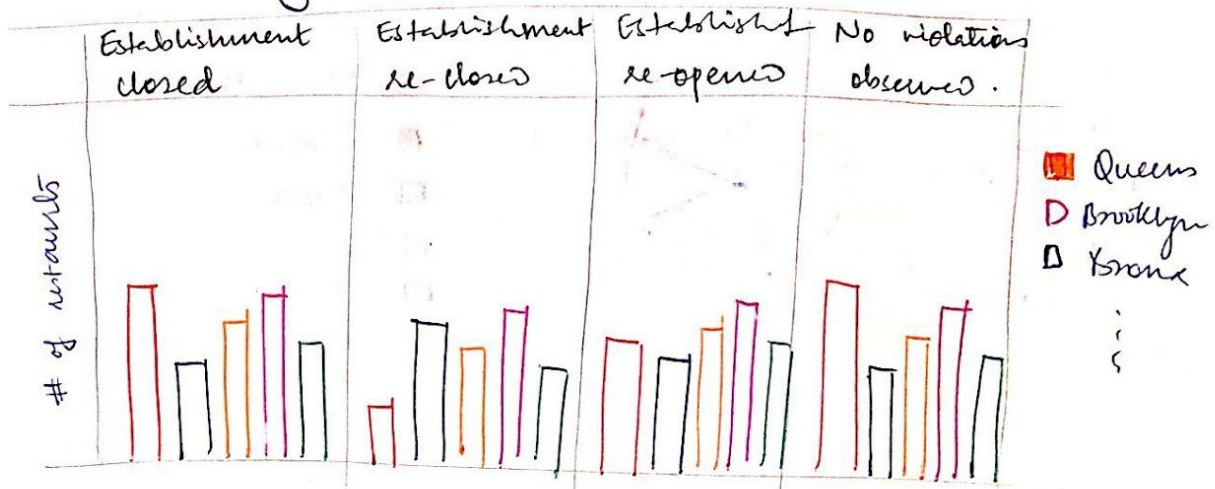 Establishment
closed
Establishment
re-closed
Establishmt
re-opened
No violations
observed.
# of restaurants
Queens
Brooklyn
Bronx